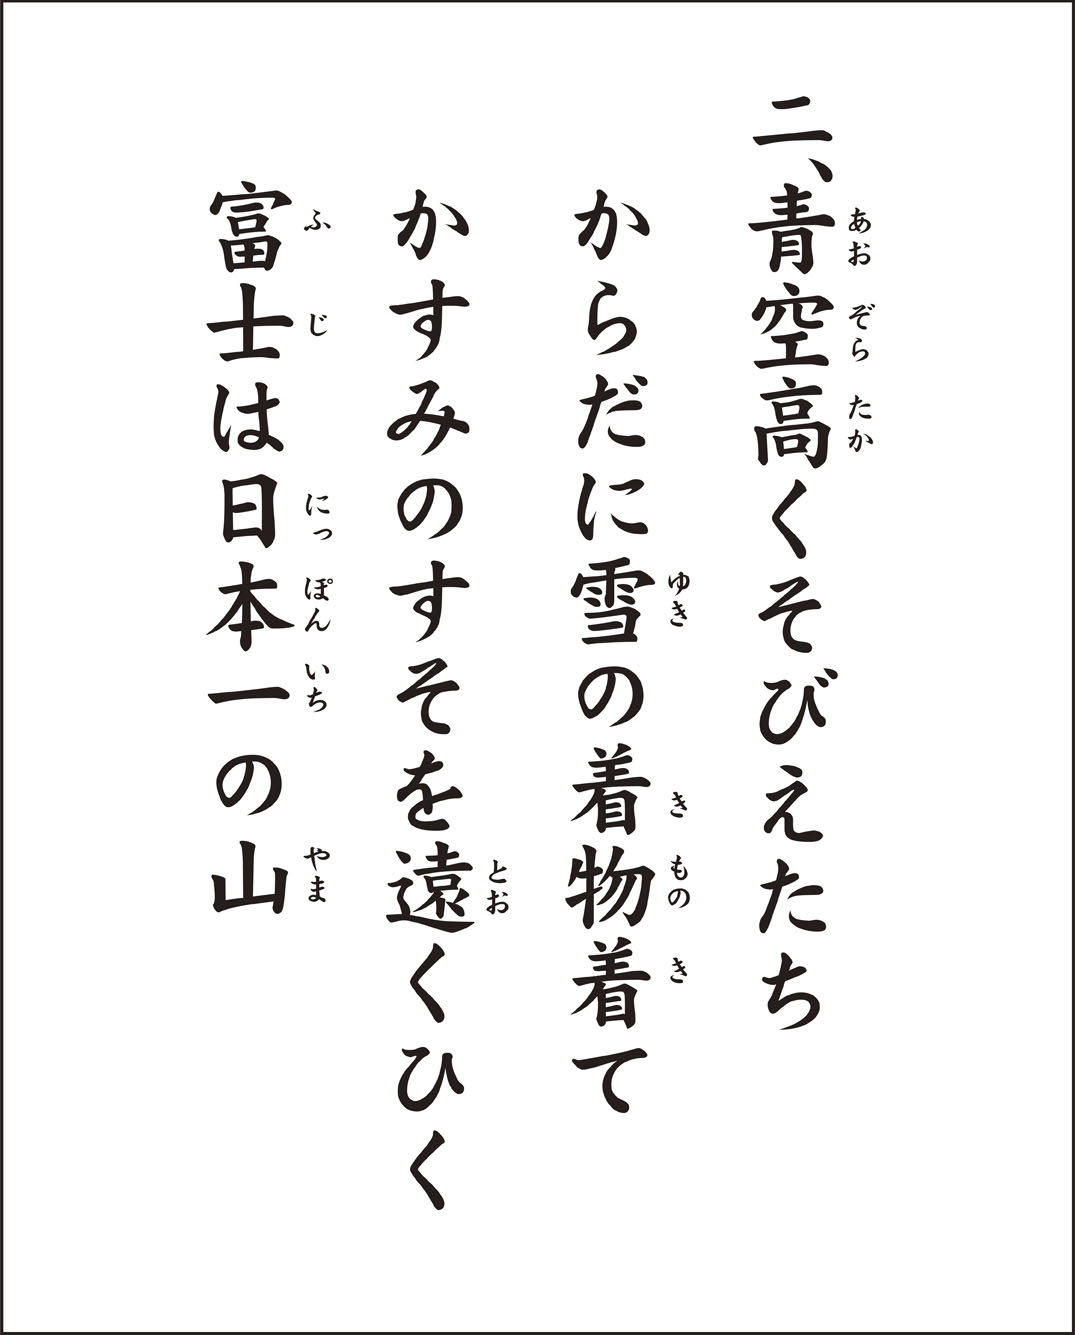 二、青空高くそびえたち
からだに雪の着物着て
かすみのすそを遠くひく
富士は日本一の山
あお ぞら たか
ゆき き もの き
とお
ふ じ にっ ぽん いち やま